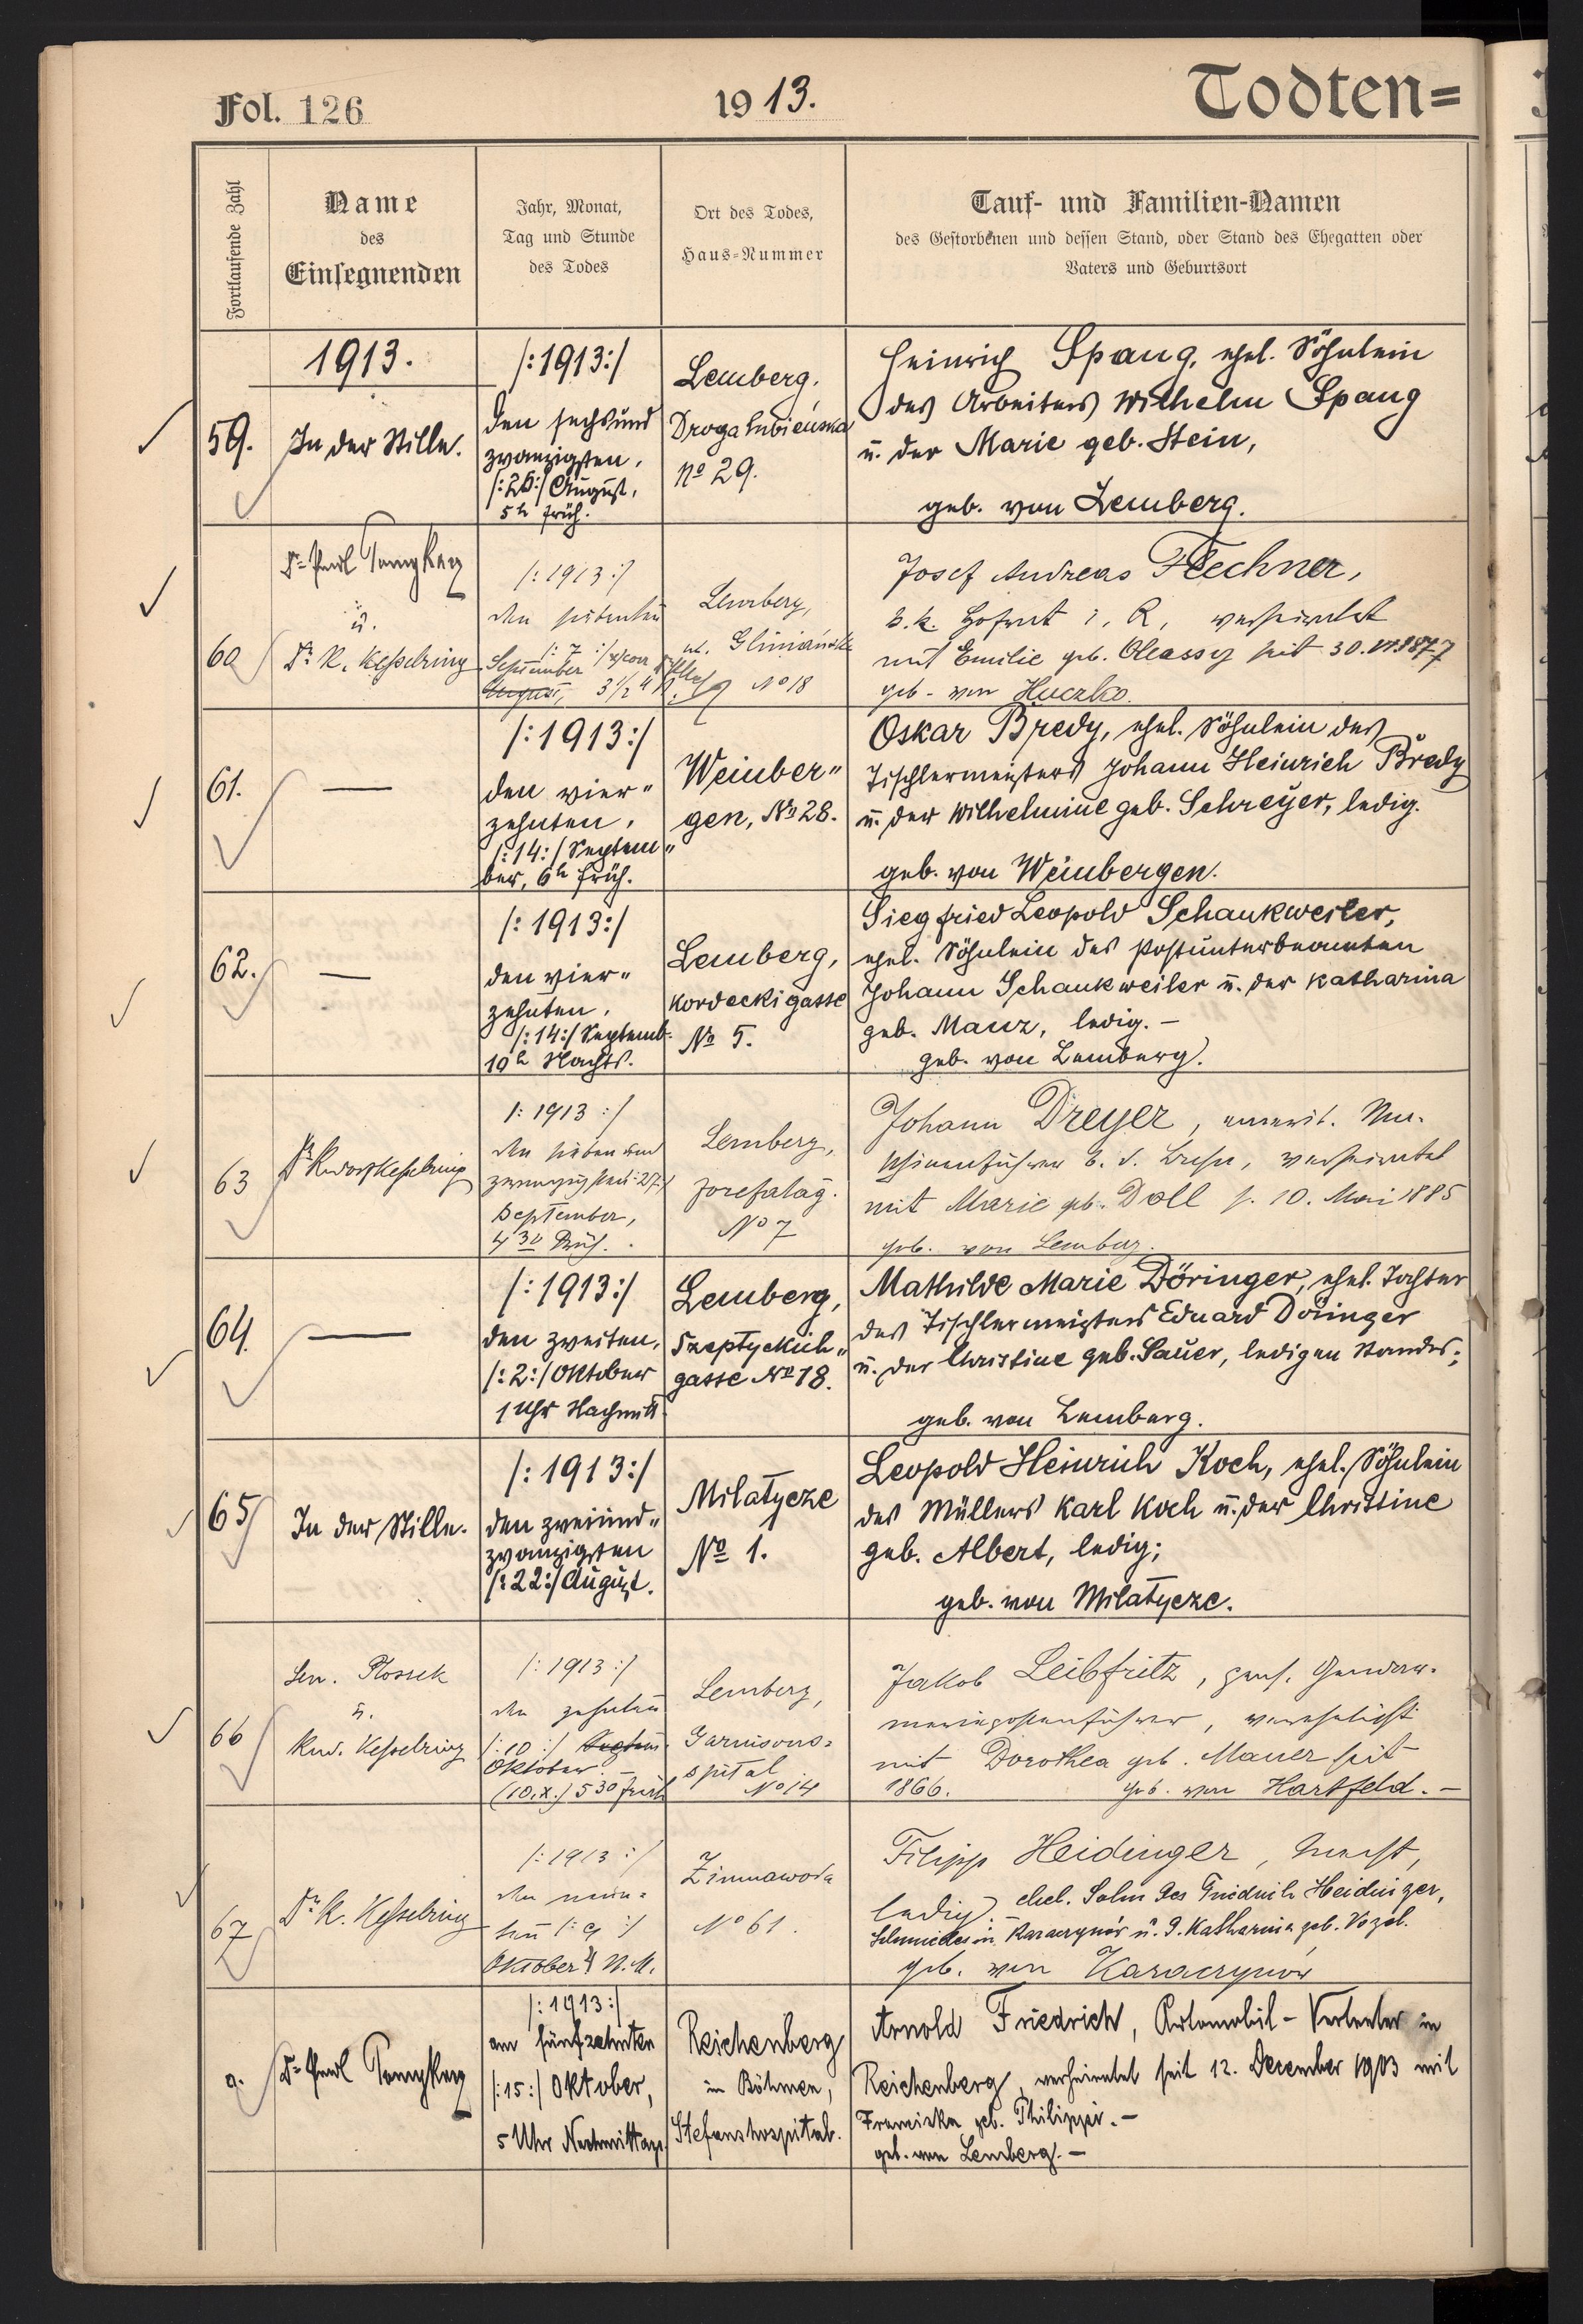 Fol. 126
1913.
Todten=
Fortlaufende Zahl
Name
des
Einsegnenden
Jahr, Monat,
Tag und Stunde
des Todes
Ort des Todes,
Haus-Nummer
Tauf- und Familien-Namen
des Gestorbenen und dessen Stand, oder Stand des Ehegatten oder
Vaters und Geburtsort
1913.
59.
In der Stille.
/:1913:/
den sechsund
zwanzigsten,
/:26:/ August,
5h früh.
Lemberg,
Droga
No 29.
Heinrich Spang, ehel. Söhnlein
des Arbeiters Wilhelm Spang
u. der Marie geb. Stein,
geb. von Lemberg.
60
Dr
u.
Dr K. Kesselring
/:1913:/
den siebenten
/:7:/
September
August, 3 1/2
Lemberg,
No 18
Josef Andreas Flechner,
k.k. Hofrat i. R., verheiratet
mit Emilie geb. seit 30. 1877
geb. von Huczko.
61.
—
/:1913:/
den vier"
zehnten,
/:14:/ Septem"
ber, 6h früh.
Weinber"
gen, No 28.
Oskar Bredy, ehel. Söhnlein des
Tischlermeisters Johann Heinrich Bredy
u. der Wilhelmine geb. Schreyer, ledig.
geb. von Weinbergen.
62.
—
/:1913:/
den vier"
zehnten,
/:14:/ Septemb.
10h Nachts.
Lemberg,
Kordeckigasse
No 5.
Siegfried Leopold Schankweiler,
ehel. Söhnlein des Postunterbeamten
Johann Schankweiler u. der Katharina
geb. Manz, ledig. —
geb. von Lemberg.
63
Dr Kesselring
/:1913:/
den sieben und
zwanzigsten :27:/
September,
4 30 Früh.
Lemberg,
No 7
Johann Dreyer, emerit. Ma-
schinenführer d. Bahn, verheiratet
mit Marie geb. Doll s. 10. Mai 1885
geb. von Lemberg.
64.
—
/:1913:/
den zweiten,
/:2:/ Oktober
1 Uhr Nachmitt.
Lemberg,
Szeptyckich"
gasse No 18.
Mathilde Marie Döringer, ehel. Tochter
des Tischlermeisters Eduard Döringer
u. der Christine geb. Sauer, ledigen Standes;
geb. von Lemberg.
65
In der Stille.
/:1913:/
den zweiund"
zwanzigsten
/:22:/ August.
Milatycze
No 1.
Leopold Heinrich Koch, ehel. Söhnlein
des Müllers Karl Koch u. der Christine
geb. Albert, ledig;
geb. von Milatycze.
66
Sen.
u.
Kesselring
/:1913:/
den zehnten
/:10:/
Oktober
(10.X.) 5 30 früh
Lemberg,
Garnisons-
spital
No 14
Jakob Leibfritz, pens. Gendar-
merieposten­führer, verehelicht
mit Dorothea geb. Mauer seit
1866. geb. von Hartfeld. —
67
Dr K. Kesselring
/:1913:/
den neun-
ten /:9:/
Oktober 4 N.M.
Zimnawoda
No 61.
Filipp Heidinger,
ledig, ehel. Sohn des Friedrich Heidinger,
Schmiedes in Karaczynów u. d. Katharina geb.
geb. von Karaczynów
a.
Dr
/:1913:/
am fünfzehnten
/:15:/ Oktober,
5 Uhr Nachmittag.
Reichenberg
in Böhmen,
Stefanshospital.
Arnold Friedrich, Automobil-Vertreter in
Reichenberg, verheiratet seit 12. December 1903 mit
Franciska geb. Philippi. —
geb. von Lemberg. —